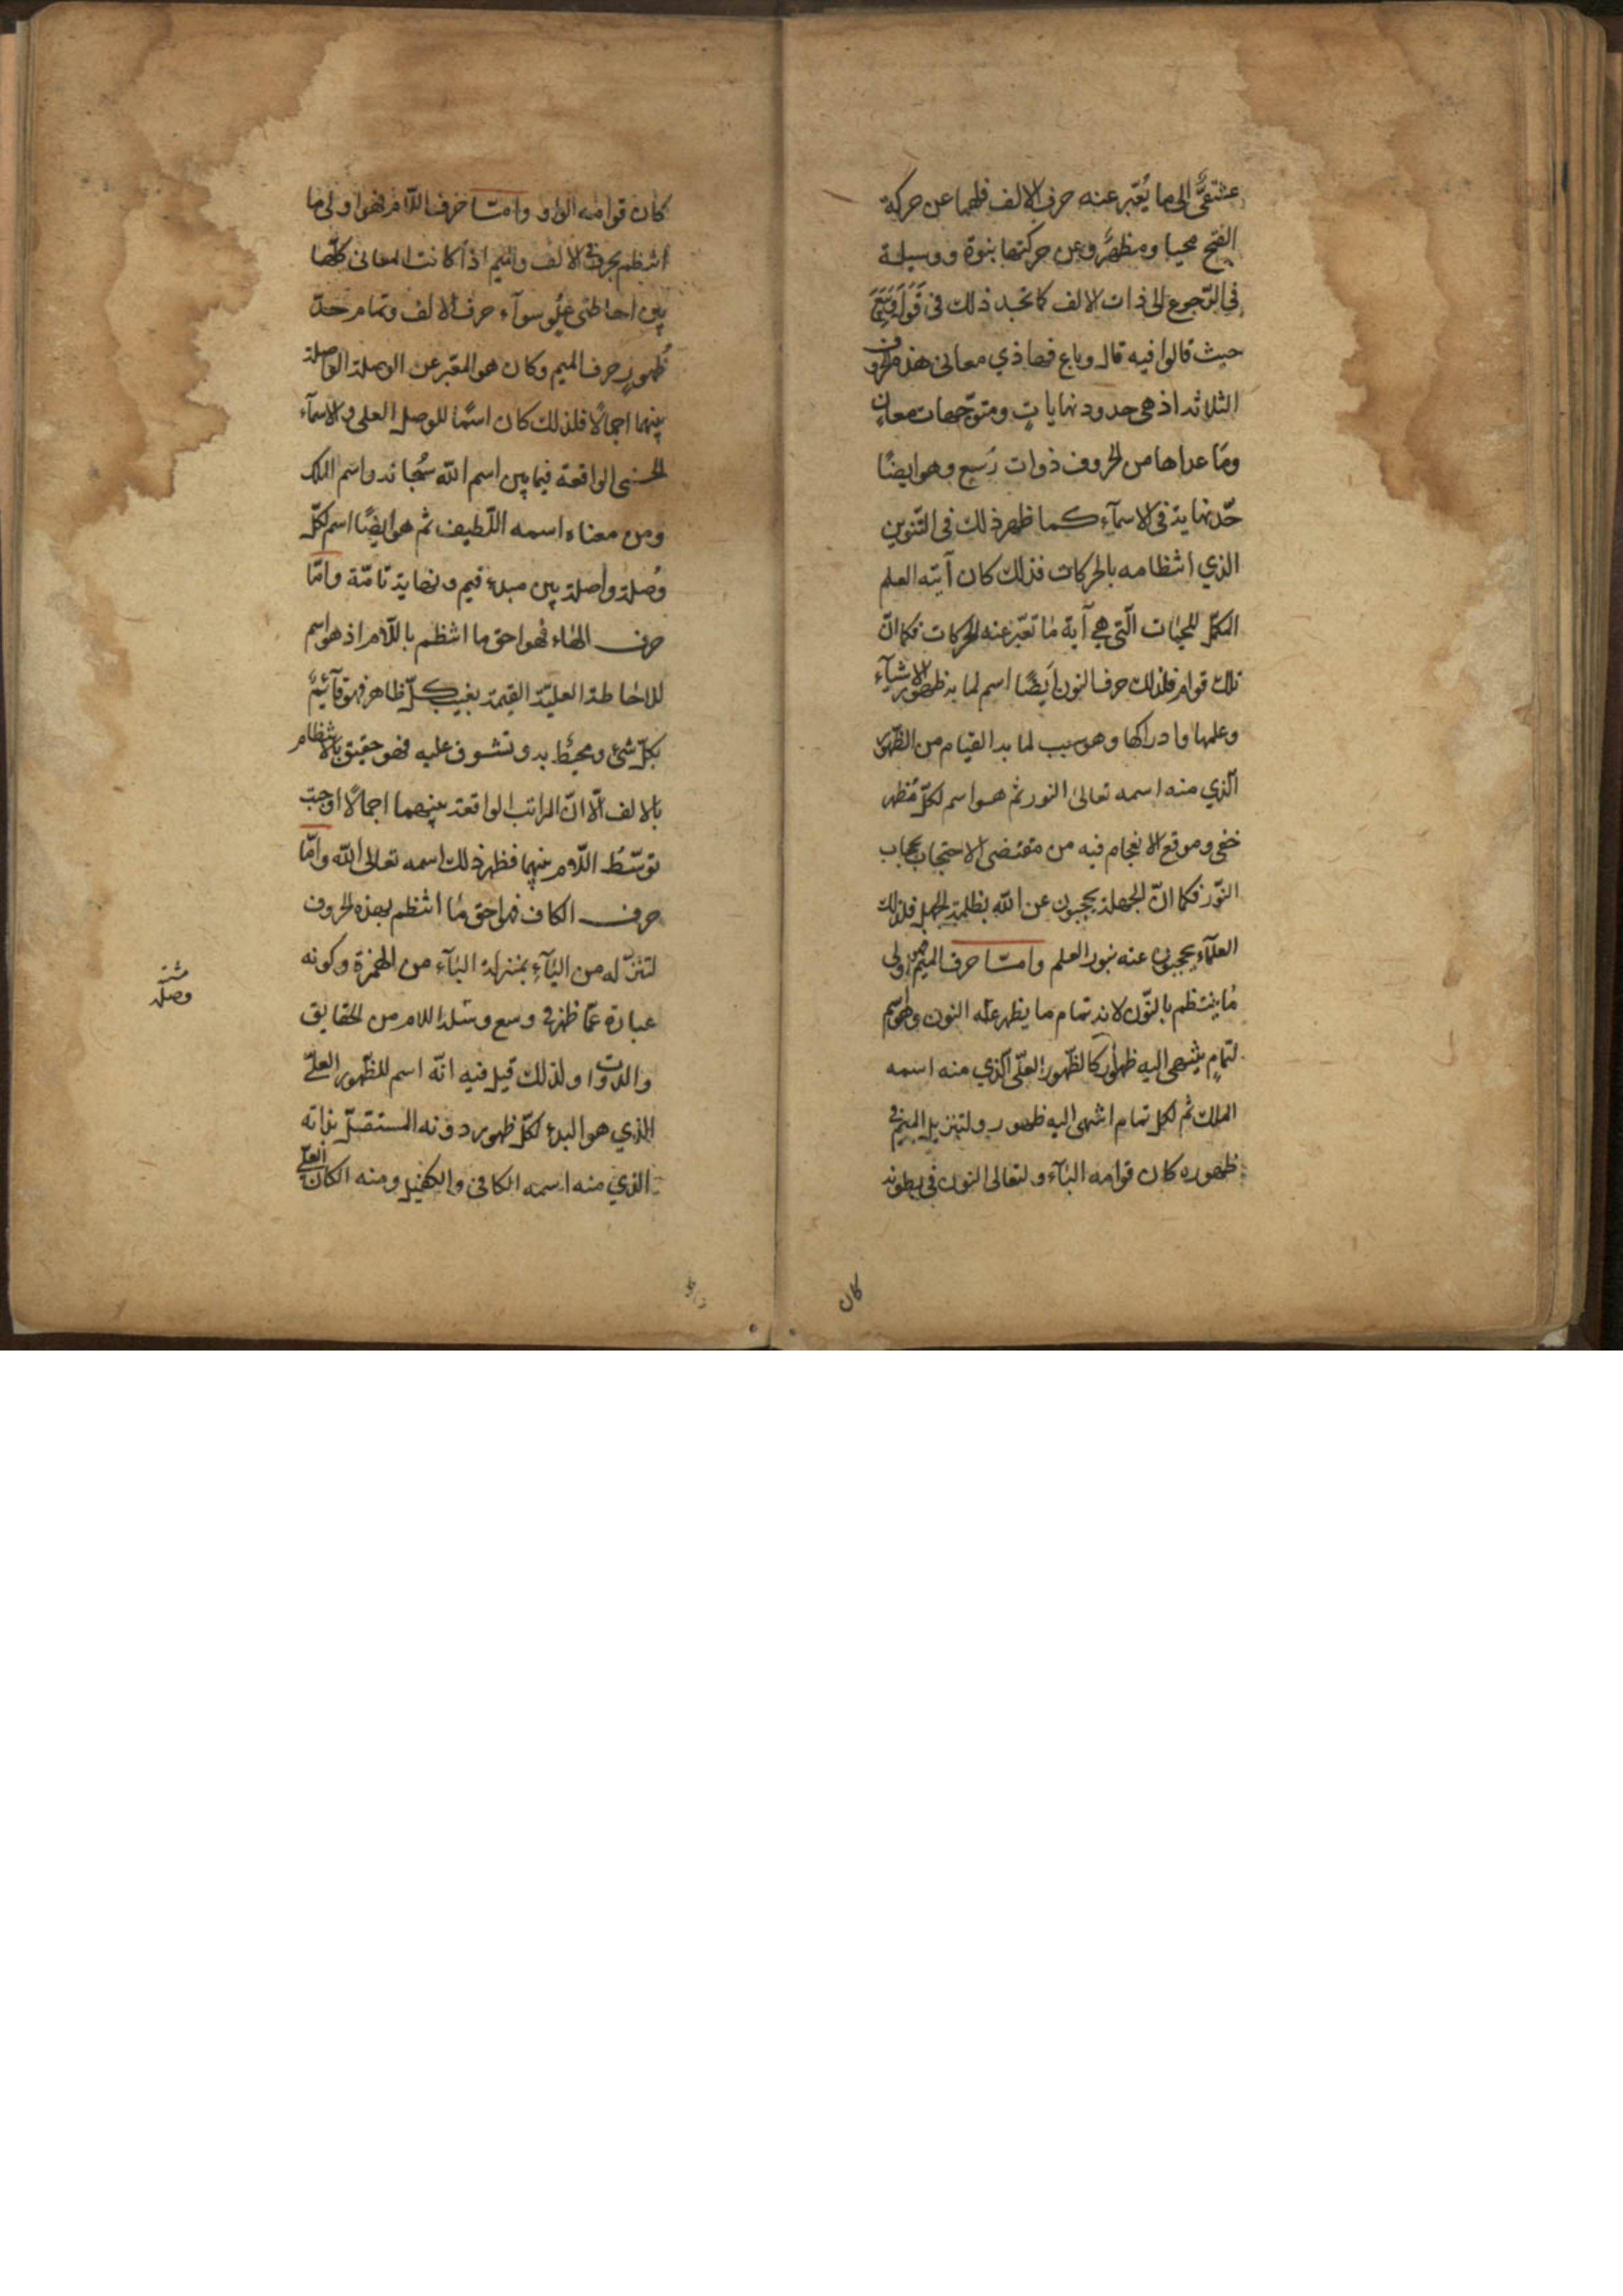 الى ما يُعبّر عنه حرف الالف فلهما عن حركة
الفتح محيا ومظهر وعن حركتها بنوة ووسيلة
فى الرّجوع الى ذات الالف كما تجد ذلك فى
حيث قالوا فيه قال وباع فهاذي معانى هذه الحروف
الثلاثة اذ هى حدود نهايات ومتوجّهات معان
وما عداها من الحروف ذوات وسع وهو ايضًا
حدّ نهاية فى الاسمآء كما ظهر ذلك فى التّنوين
الذي انتظامه بالحركات فذلك كان آيته العلم
المكمّل للحيات الّتى هي آية ما تعبّر عنه الحركات فكما انّ
تلك قوام فلذلك حرف النون ايضًا اسم لما به ظهور الاشيآء
وعلمها وادراكها وهو سبب لما بدا القيام من الظّهور
الّذي منه اسمه تعالى النور ثم هو اسم لكلّ مُظهر
خفى وموقع الانعجام فيه من مقتضى الاحتجاب بحجاب
النّور فكما انّ الجهلة يحجبون عن الله بظلمة الجهل فلذلك
العلمآء يحجبون عنه بنور العلم وامّا حرف الميم فهو اولى
ما ينتظم بالنّون لانه تمام ما يظهر عنه النون وهو اسم
لتمامٍ ينتهى اليه ظهور كالظّهور العلّى الّذي منه اسمه
الملك ثم لكل تمام انتهى اليه ظهور ولتنزيل الميم فى
ظهوره كان قوامه اليآء ولتعالى النون فى بطونه
كان
كان قوامه الواو وامّا حرف اللّام فهو اولى ما
انتظم بحرفى الالف والميم اذا كانت المعانى كلّها
بين احاطتى علو سوآء حرف الالف وتمام حدّ
ظهور حرف الميم وكان هو المعبّر عن الوصلة الواصلة
بينهما اجمالًا فلذلك كان اسمًا للوصل العلى والاسمآء
الحسنى الواقعة فيما بين اسم الله سُبحانه واسم الملك
ومن معناه اسمه اللّطيف ثم هو ايضًا اسم لكلّ
وُصلة واصلة بين مبدء قيم ونهاية تامّة وامّا
حرف الهاء فهو احق ما انتظم باللّام اذ هو اسم
للاحاطة العليّة القيمة بغيب كلّ ظاهر فهو قآئم
بكلّ شئ ومحيط به وتشوف عليه فهو حقيق بالانتظام
بالالف الّا انّ المراتب الواقعة بينهما اجمالًا اوجبت
توسّط اللّام بينهما فظهر ذلك اسمه تعالى الله وامّا
حرف الكاف فهو احق ما انتظم بهذه الحروف
لتنزّله من اليآء بمنزلة اليآء من الهمزة وكونه
عبارة عمّا ظهر فى وسع وشلة اللام من الحقايق
والذوات ولذلك قيل فيه انّه اسم للظّهور العلىّ
الذي هو البدء لكلّ ظهور دونه المستقلّ بذاته
الذي منه اسمه الكافى والكفيل ومنه الكان العلىّ
وصلة